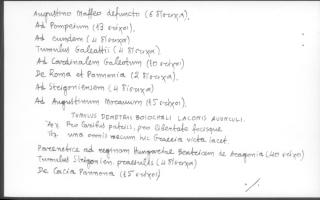 Augustino Maffeo defuncto (6 δίστιχα),
Ad Pompeium (13 στίχοι),
Ad eundem (4 δίστιχα)
Tumulus Galeatti (4 δίστιχα)
Ad Cardinalem Galeotum (10 στίχοι)
De Roma et Pannonia (2 δίστιχα),
Ad Strigoniensem (4 δίστιχα)
Ad Augustinum Moravum (15 στίχοι),
TUMULUS DEMETRII BOIOCHALI LACONIS AVUNCULI.
Pro laribus patriis, pro libertate focisque
una omnis mecum hic Graecia victa iacet.
Parenetice ad reginam Hungariae Beatricem de Aragonia (40 στίχοι)
Tumulus Strigonien. praesulis (4 δίστιχα)
De Cacia Pannona (15 στίχοι)